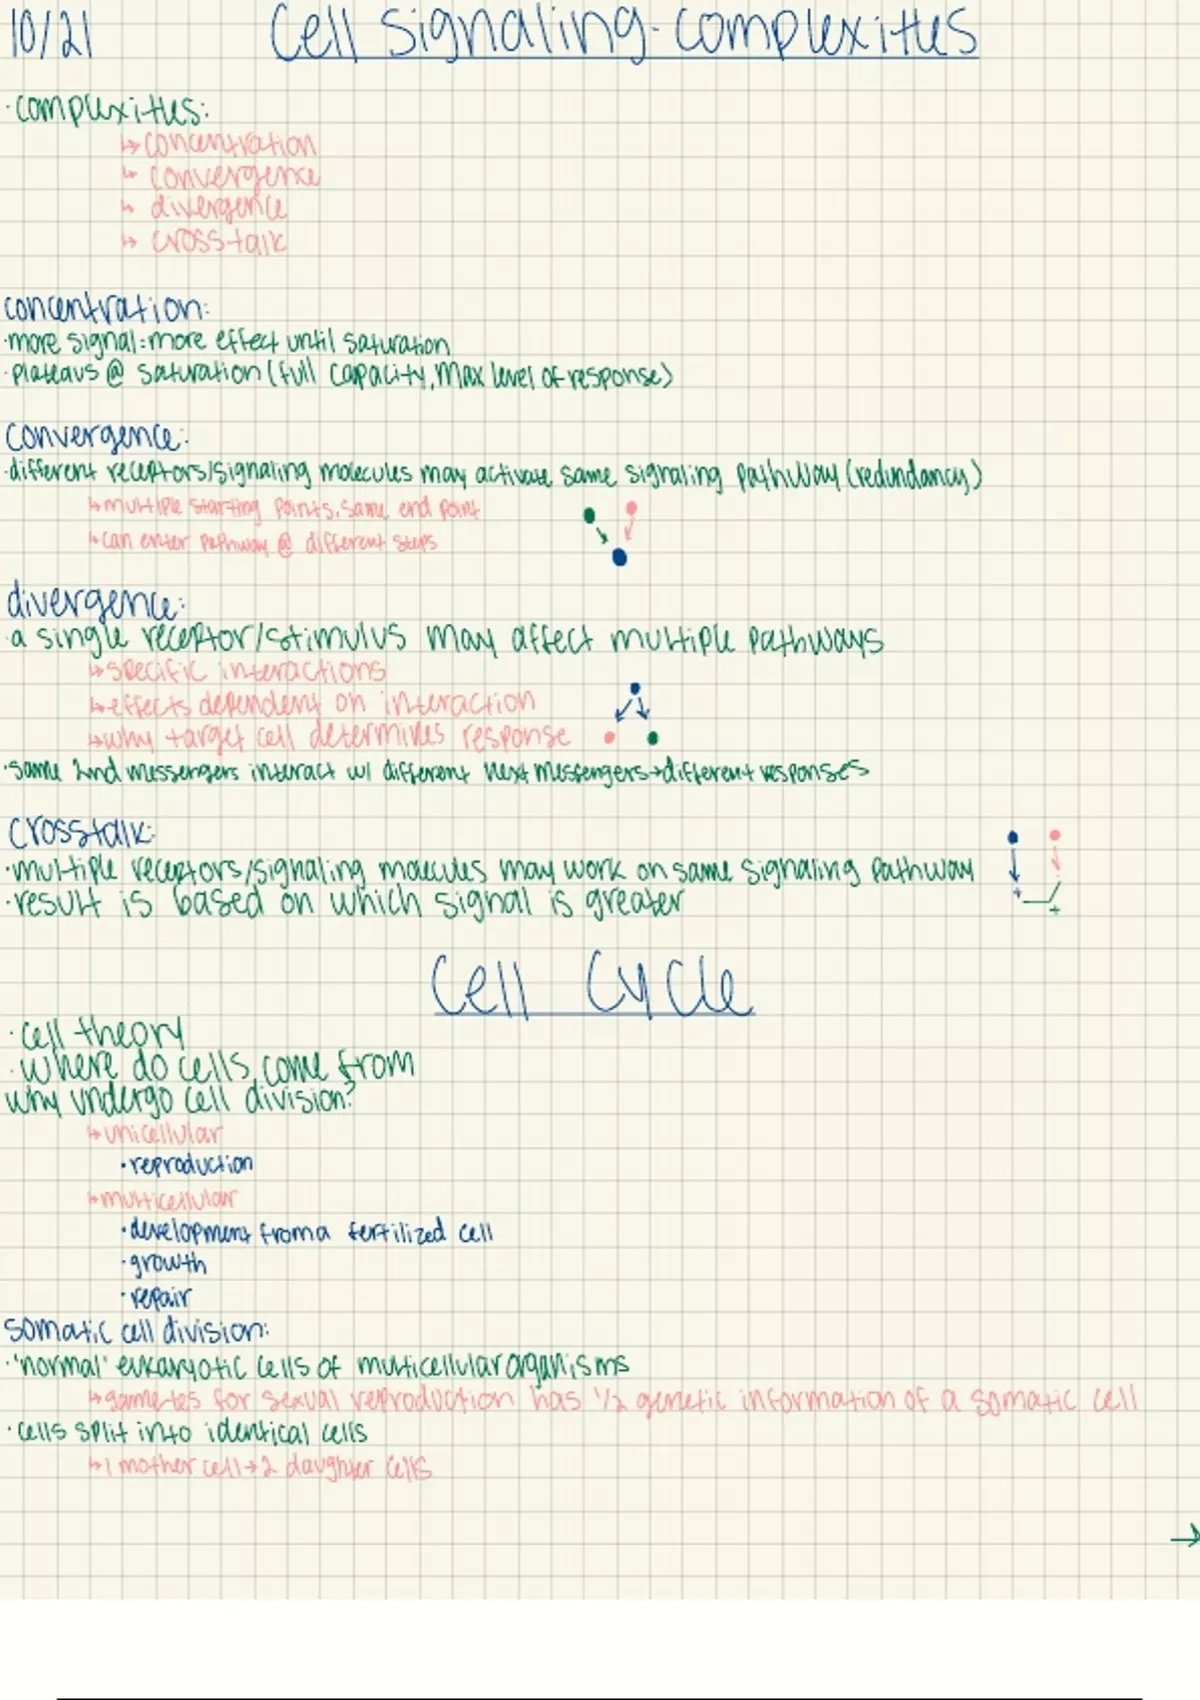 10/21 Cell signaling-complexities
·complexities:
↳concentration
↳ convergence
↳ divergence
↳ crosstalk
concentration:
·more signal=more effect until saturation
·plateaus @ saturation (full capacity, max level of response)
convergence:
·different receptors/signaling molecules may activate same signaling pathway (redundancy)
↳multiple starting points, same end point
↳can enter pathway @ different steps
divergence:
·a single receptor/stimulus may affect multiple pathways
↳specific interactions
↳effects dependent on interaction
↳why target cell determines response
·same 2nd messengers interact w/ different next messengers→different responses
crosstalk:
·multiple receptors/signaling molecules may work on same signaling pathway
·result is based on which signal is greater
+
+
Cell Cycle
·cell theory
·where do cells come from
why undergo cell division?
↳unicellular
·reproduction
↳multicellular
·development from a fertilized cell
·growth
·repair
somatic cell division:
·'normal' eukaryotic cells of multicellular organisms
↳gametes for sexual reproduction has 1/2 genetic information of a somatic cell
·cells split into identical cells
↳1 mother cell→2 daughter cells
→